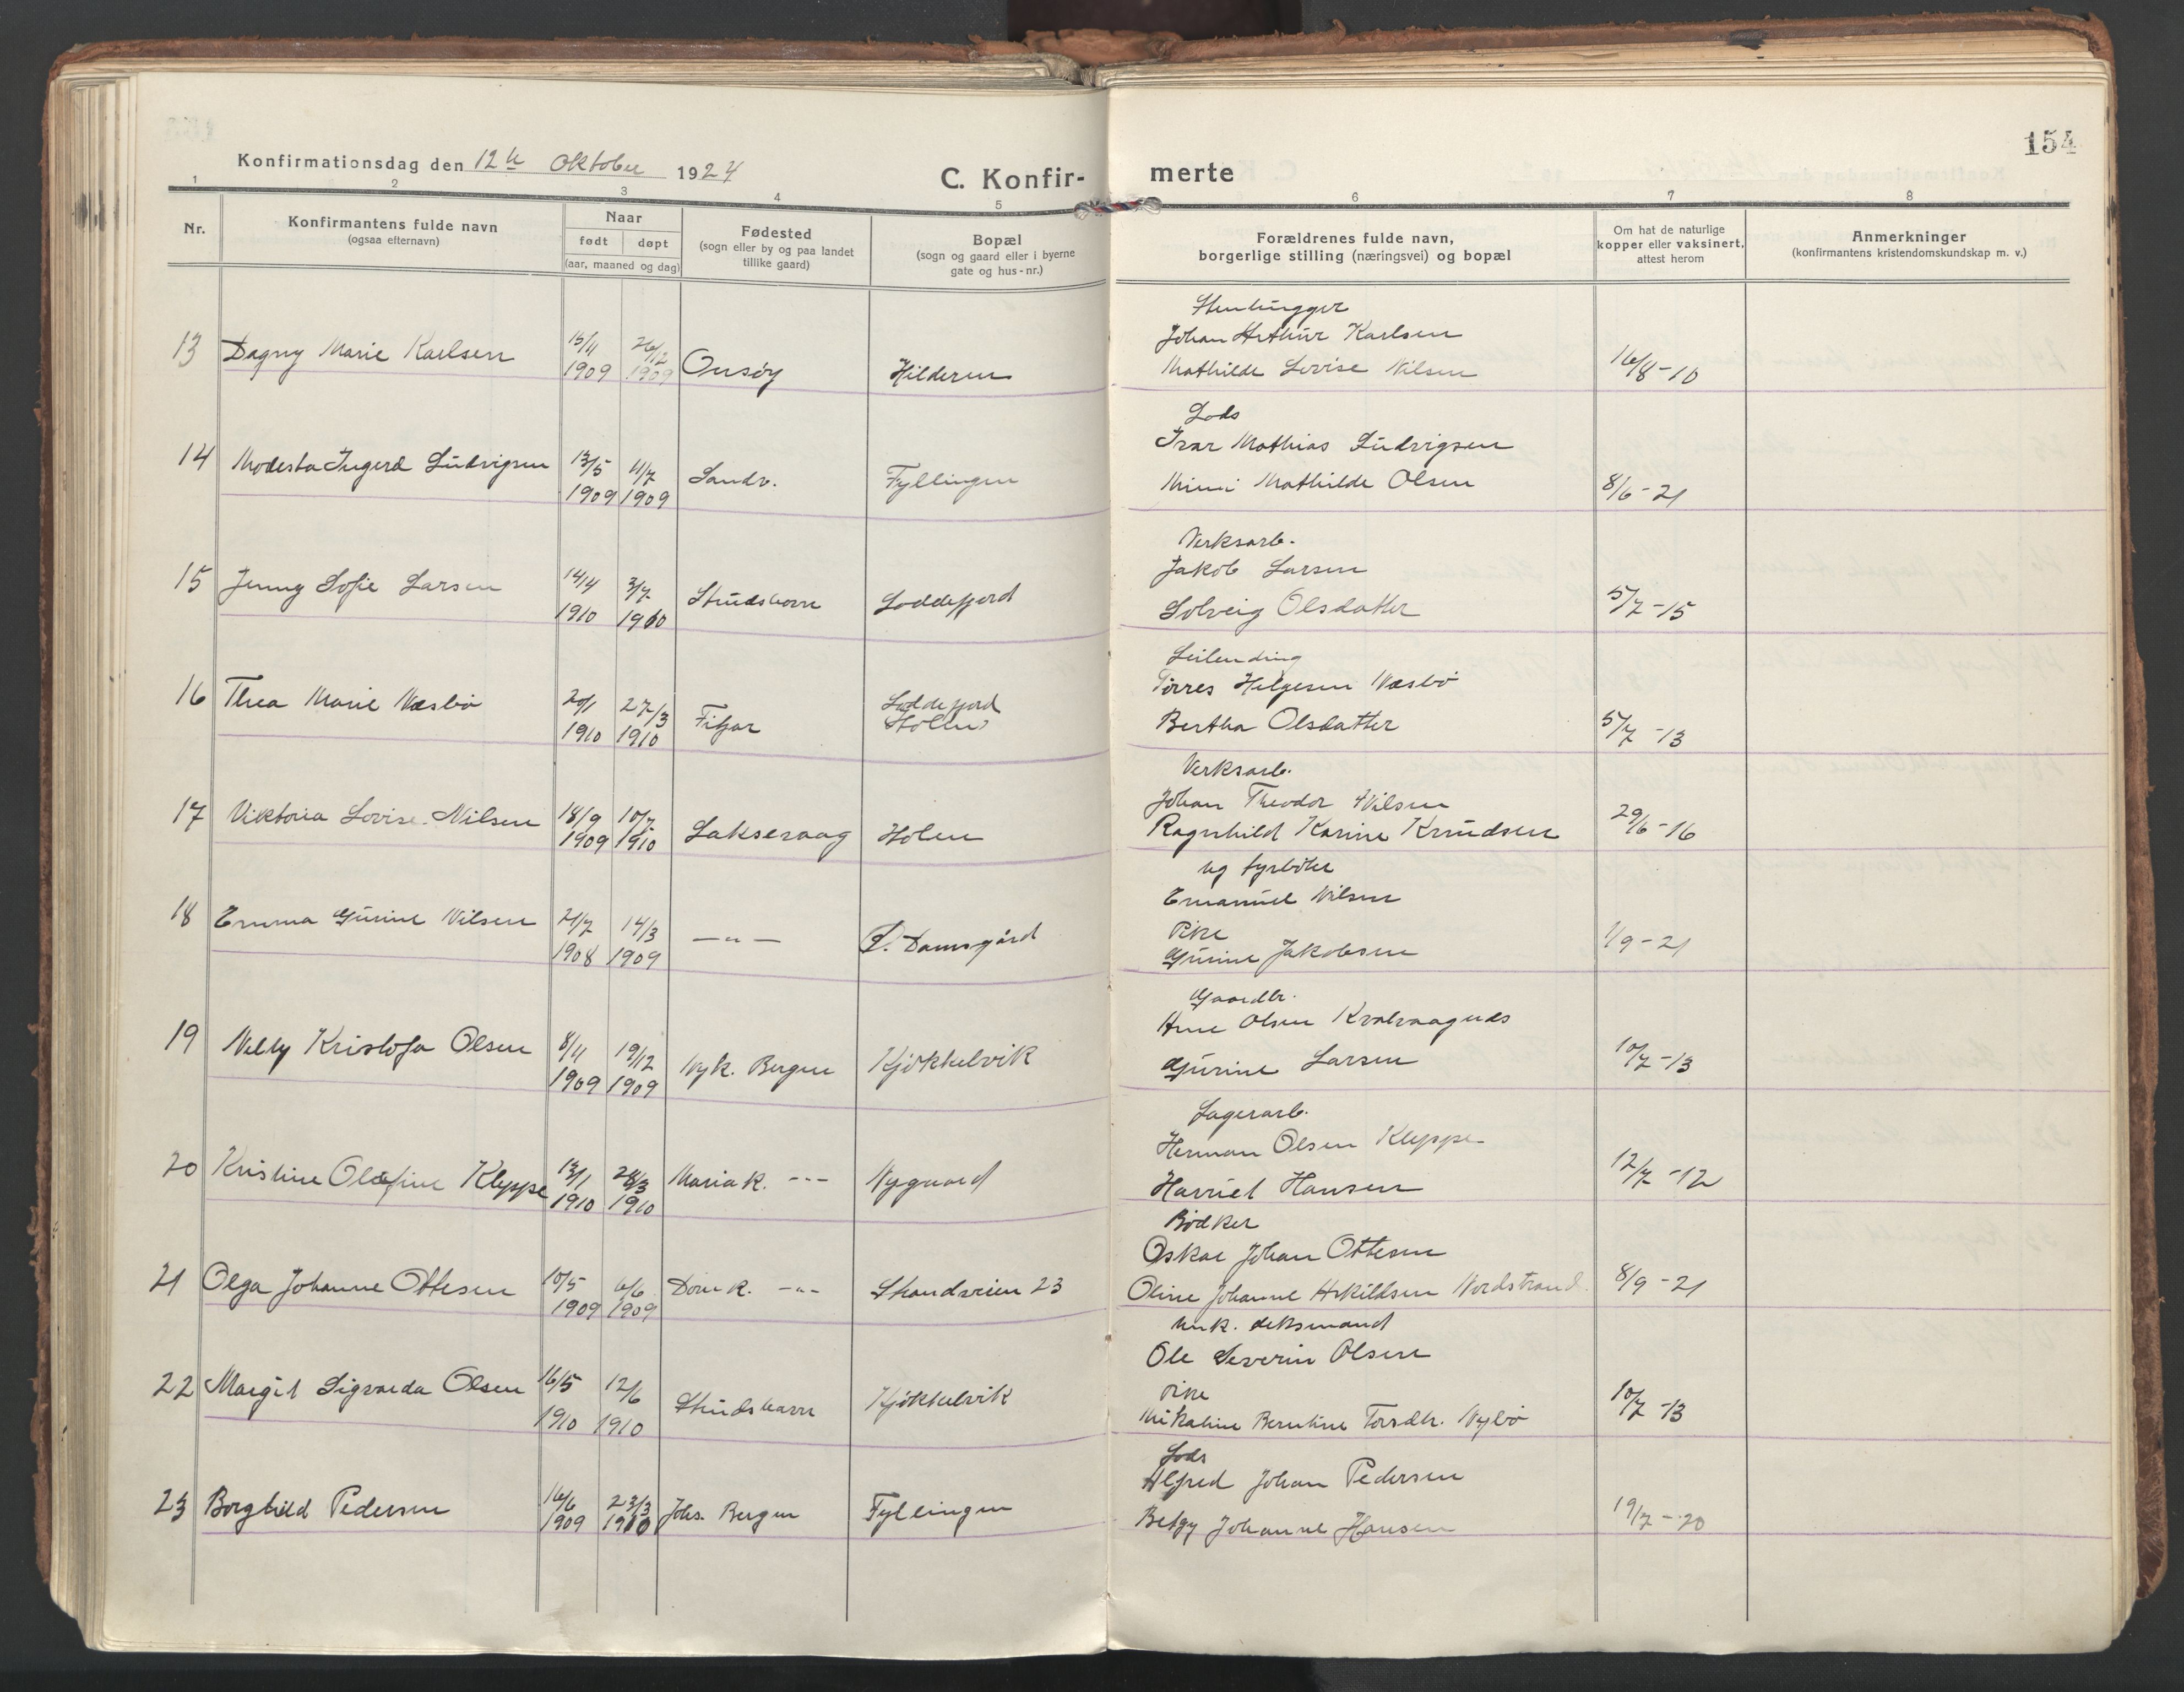 154
Konfirmationsdag den 12te Oktober 1924
C. Konfir-merte
1 2 3 4 5 6 7 8
Nr.
Konfirmantens fulde navn
(ogsaa efternavn)
Naar
født døpt
(aar, maaned og dag)
Fødested
(sogn eller by og paa landet
tillike gaard)
Bopæl
(sogn og gaard eller i byerne
gate og hus-nr.)
Forældrenes fulde navn,
borgerlige stilling (næringsvei) og bopæl
Om hat de naturlige
kopper eller vaksinert,
attest herom
Anmerkninger
(konfirmantens kristendomskundskap m. v.)
13 Dagny Marie Karlsen 15/11 1909 26/12 1909 Onsøy Hilderen
Stenhugger
Johan Arthur Karlsen
Mathilde Lovise Nilsen 16/8-10
14 Modesta Ingerd Ludvigsen 13/5 1909 4/7 1909 Sandv. Fyllingen
Lods
Ivar Mathias Ludvigsen
Mimi Mathilde Olsen 8/6-21
15 Jenny Sofie Larsen 14/4 1910 3/7 1910 Strudshavn Loddefjord
Verksarb.
Jakob Larsen
Solveig Olsdatter 5/7-15
16 Thea Marie Næsbø 20/1 1910 27/3 1910 Fitjar Loddefjord
Leilending
Tørres Helgesen Næsbø
Bertha Olsdatter 5/7-13
17 Viktoria Lovise Nilsen 18/9 1909 10/7 1910 Laksevaag Holen
Verksarb.
Johan Theodor Nilsen
Ragnhild Karine Knudsen 29/6-16
18 Emma Gurine Nilsen 21/7 1908 14/3 1909 —"— D. Damsgård
ug fyrbøter
Emanuel Nilsen
Pike
Gurine Jakobsen 1/9-21
19 Nelly Kristofa Olsen 8/11 1909 19/12 1909 Nyk. Bergen Kjøkkelvik
Gaardbr.
Arne Olsen Kvalvaagnes
Gurine Larsen 10/7-13
20 Kristine Olafine Kleppe 13/1 1910 28/3 1910 Mariak. -"- Nygaard
Lagerarb.
Herman Olsen Kleppe
Harriet Hansen 12/7-12
21 Olga Johanne Ottesen 10/5 1909 6/6 1909 Domk. -"- Strandveien 23
Bødker
Oskar Johan Ottesen
Oline Johanne Askildsen Nordstrand. 8/9-21
22 Margit Sigvarda Olsen 16/5 1910 12/6 1910 Strudshavn Kjøkkelvik
unk. deksmand
Ole Severin Olsen
Pike
Mikaline Berntine Torsdtr. Nybø 10/7-13
23 Borghild Pedersen 16/6 1909 23/3 1910 Johs. Bergen Fyllingen
Lods
Alfred Johan Pedersen
Betzy Johanne Hansen 19/7-20